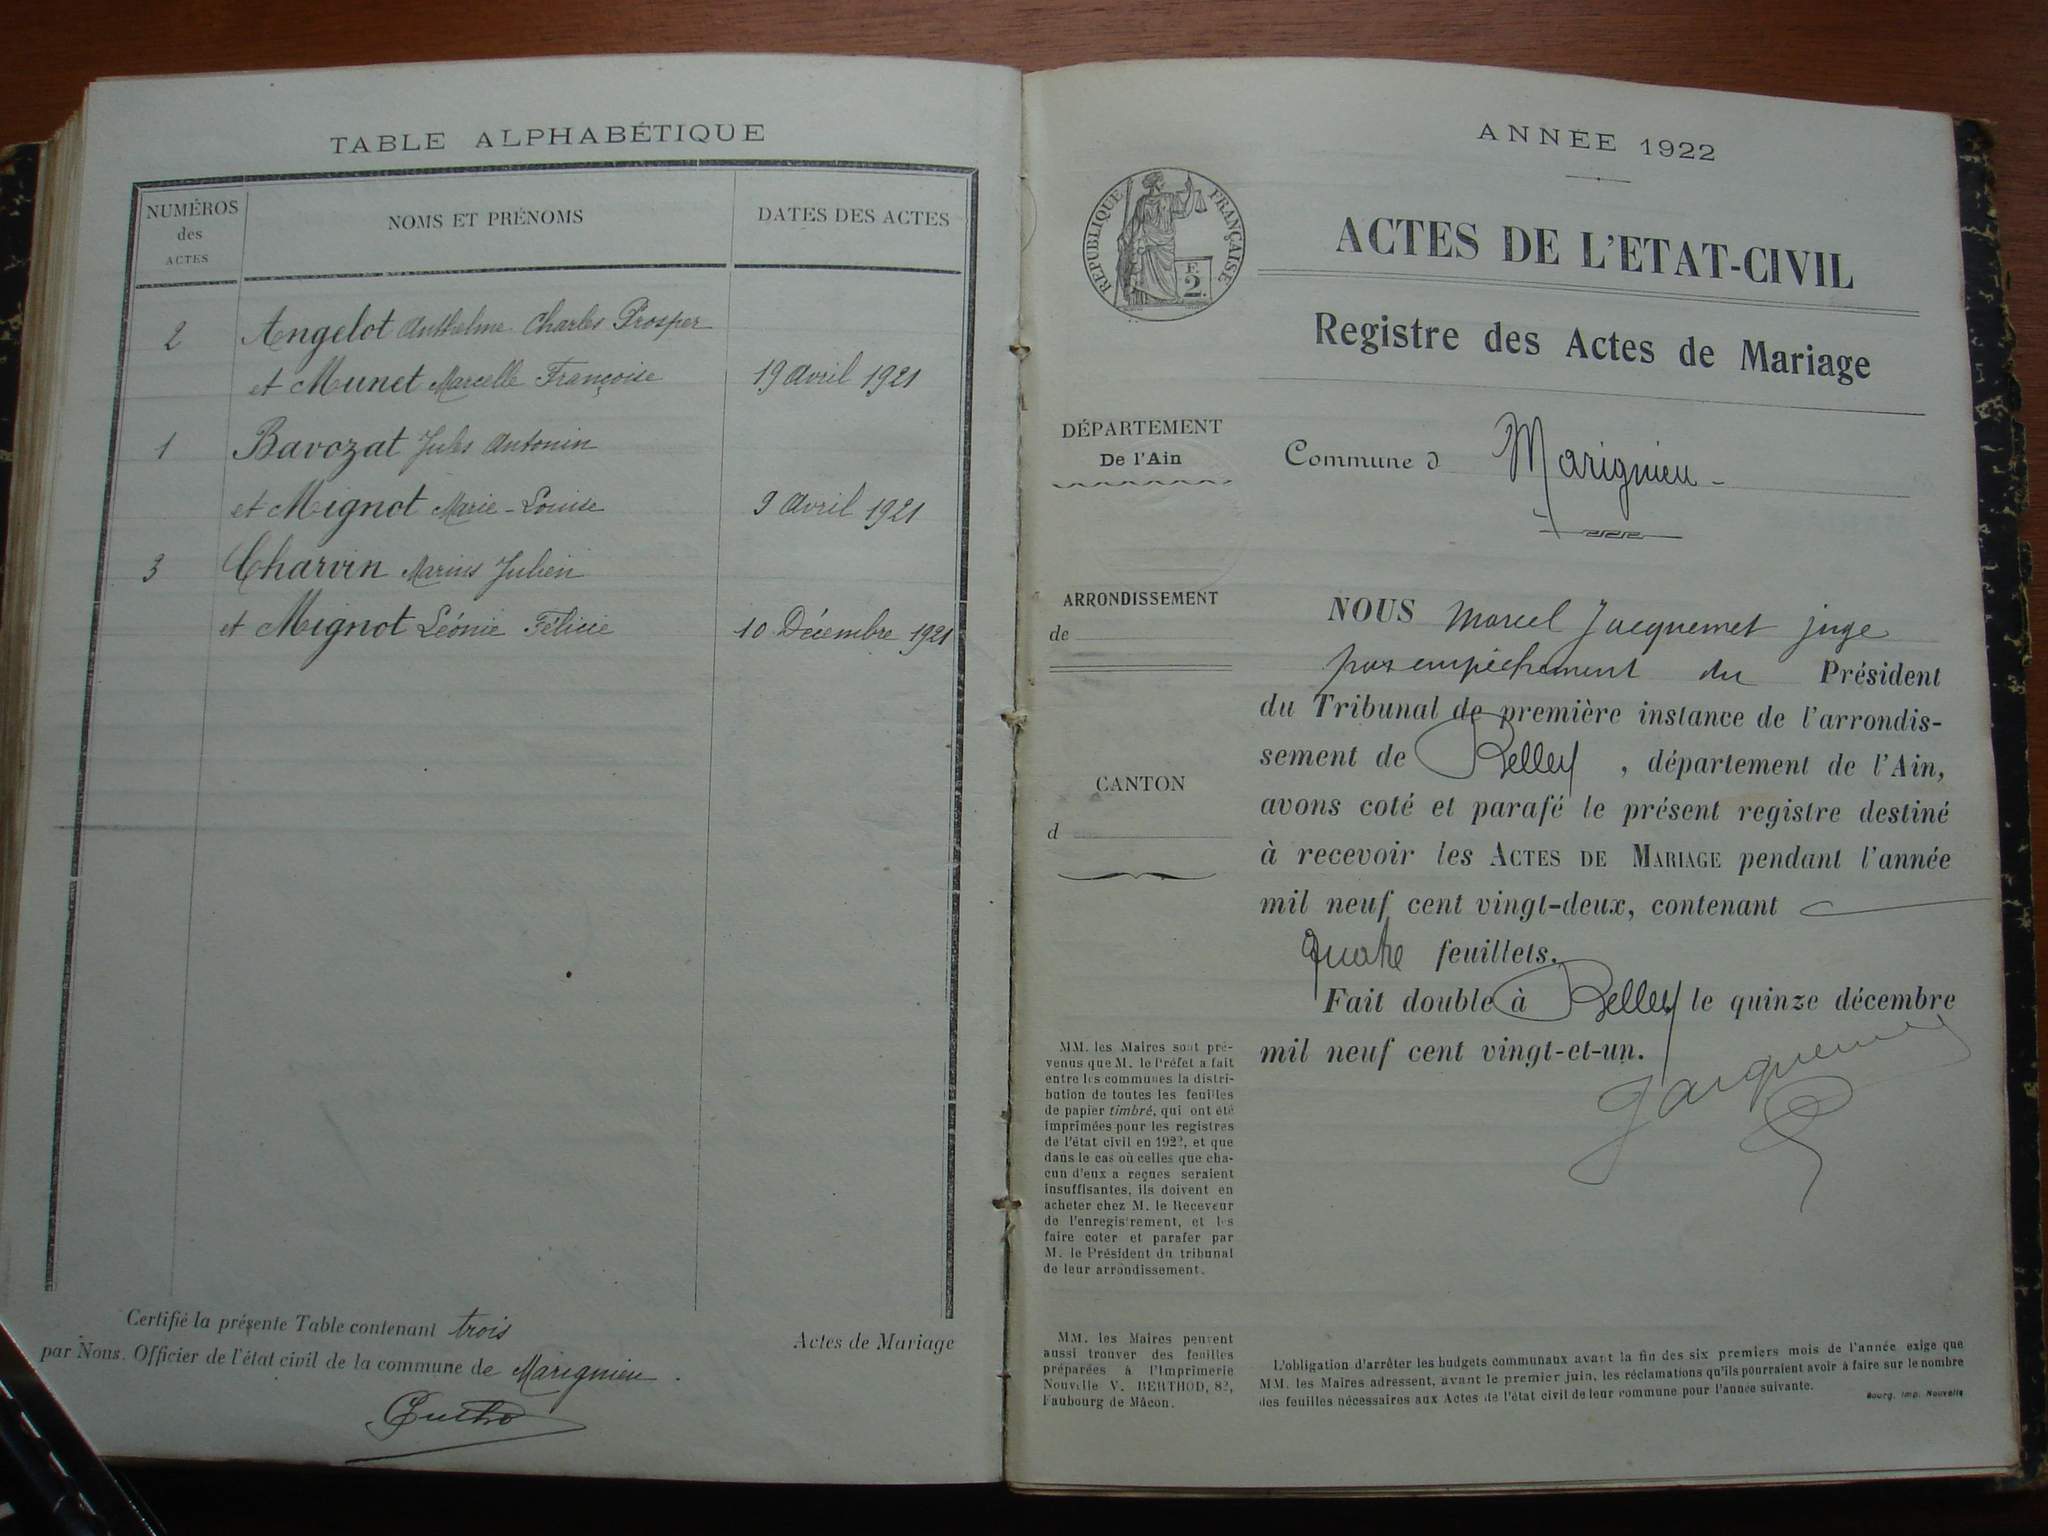 TABLE ALPHABÉTIQUE
NUMÉROS des ACTES
NOMS ET PRÉNOMS
DATES DES ACTES
2 Angelot Anthelme Charles Prosper
et Munet Marcelle Françoise 19 Avril 1921
1 Bavozat Jules Antonin
et Mignot Marie-Louise 9 Avril 1921
3 Charvin Marius Julien
et Mignot Léonie Félicie 10 Décembre 1921
Certifié la présente Table contenant trois Actes de Mariage
par Nous. Officier de l'état civil de la commune de Marignieu.
ANNÉE 1922
RÉPUBLIQUE FRANÇAISE
F.
2.
ACTES DE L'ETAT-CIVIL
Registre des Actes de Mariage
DÉPARTEMENT
De l'Ain
Commune d Marignieu -
ARRONDISSEMENT
de
CANTON
d
NOUS Marcel Jacquemet juge
par empêchement du Président
du Tribunal de première instance de l'arrondis-
sement de Belley, département de l'Ain,
avons coté et parafé le présent registre destiné
à recevoir les ACTES DE MARIAGE pendant l'année
mil neuf cent vingt-deux, contenant
quatre feuillets.
Fait double à Belley le quinze décembre
mil neuf cent vingt-et-un.
Jacquemet
MM. les Maires sont pré-
venus que M. le Préfet a fait
entre les communes la distri-
bution de toutes les feuilles
de papier timbré, qui ont été
imprimées pour les registres
de l'état civil en 1922, et que
dans le cas où celles que cha-
cun d'eux a reçues seraient
insuffisantes, ils doivent en
acheter chez M. le Receveur
de l'enregistrement, et les
faire coter et parafer par
M. le Président du tribunal
de leur arrondissement.
MM. les Maires peuvent
aussi trouver des feuilles
préparées à l'Imprimerie
Nouvelle V. BERTHOD, 82,
Faubourg de Mâcon.
L'obligation d'arrêter les budgets communaux avant la fin des six premiers mois de l'année exige que
MM. les Maires adressent, avant le premier juin, les réclamations qu'ils pourraient avoir à faire sur le nombre
des feuilles nécessaires aux Actes de l'état civil de leur commune pour l'année suivante.
Bourg, Imp. Nouvelle